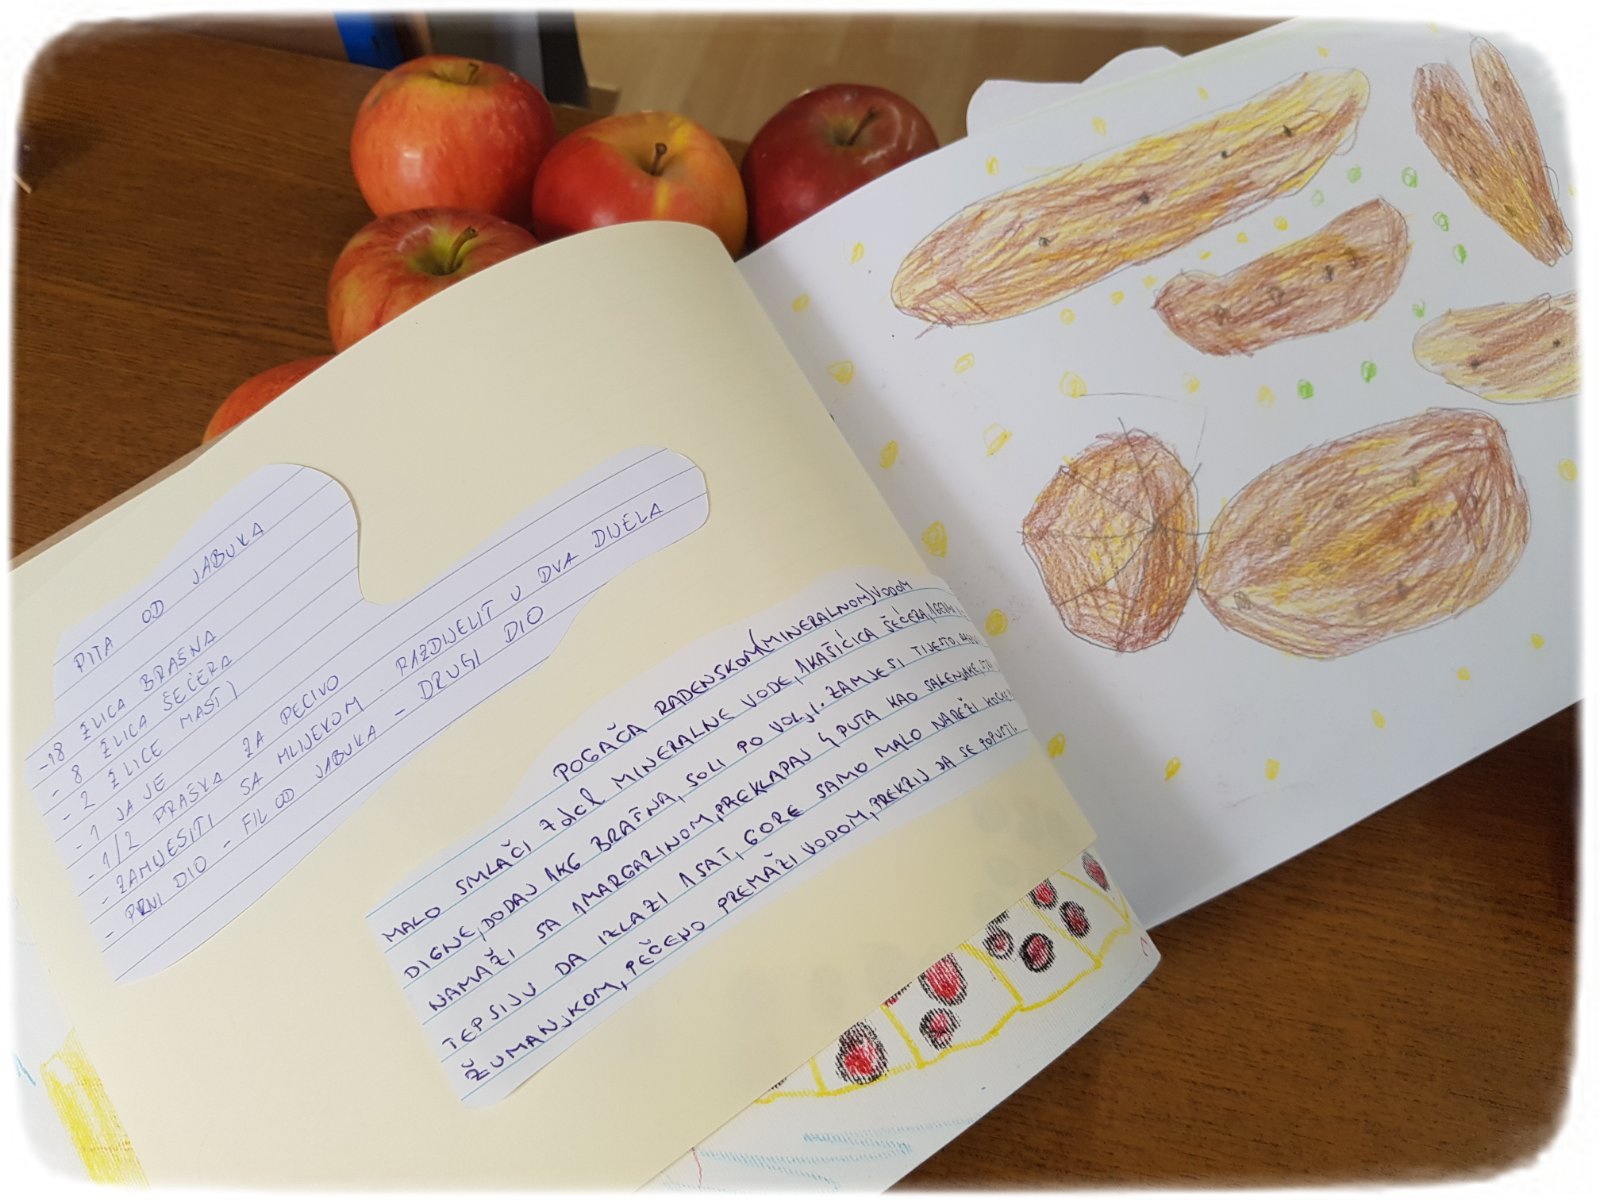 PITA OD JABUKA
-18 ŽLICA BRAŠNA
- 8 ŽLICA ŠEĆERA
- 2 ŽLICE MASTI
- 1 JAJE
- 1/2 PRAŠKA ZA PECIVO
- ZAMIJESITI SA MLIJEKOM. RAZDIJELIT U DVA DIJELA
- PRVI DIO - FIL OD JABUKA - DRUGI DIO
POGAČA RADENSKOM(MINERALNOM)VODOM
MALO SMLAČI 7 dcl MINERALNE VODE, 1KAŠIĆICA ŠEĆERA, 1
DIGNE, DODAJ 1KG BRAŠNA, SOLI PO VOLJI. ZAMJESI TIJESTO,
NAMAŽI SA 1MARGARINOM, PREKLAPAJ 4 PUTA KAO SALENJAKE,
TEPSIJU DA IZLAZI 1 SAT, GORE SAMO MALO NAREŽI
ŽUMANJKOM, PEČENO PREMAŽI VODOM, PREKRIJ DA SE POPUSTI.